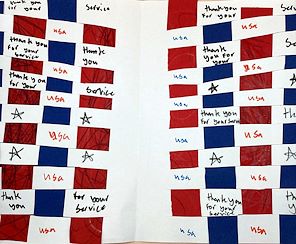 thank you
for your
service
usa
thank you
for your
service
thank
you
usa
thank you
for your
service
service
usa
usa
usa
thank
you
for your
service
usa
thank
you
for your
usa
usa
thank you
for your
service
usa
usa
usa
thank you
for your
usa
usa
usa
usa
thank you
for your
service
usa
usa